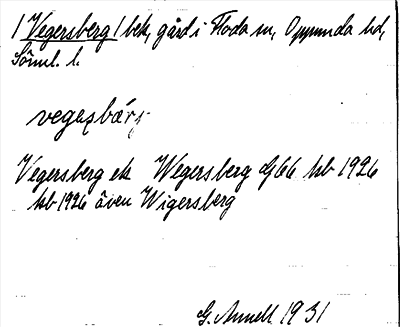 / Vegersberg / bek, gård i Floda sn, Oppunda hd,
Söml. l.
vegaṣbærj
Vegersberg ek Wegersberg Gf 66 kb 1926
kb 1926 även Wigersberg
G. Annell 1931